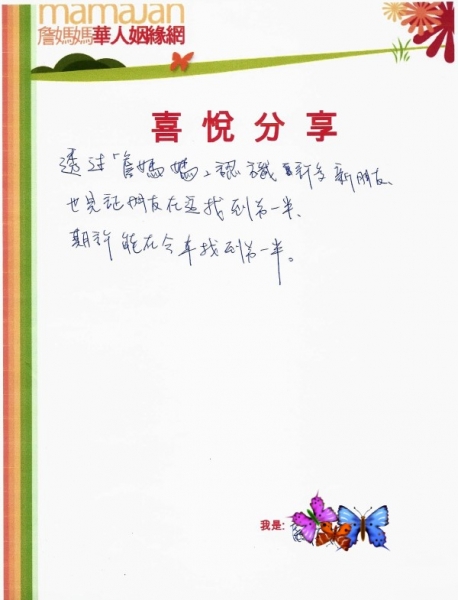 mamaJan
詹媽媽華人姻緣網
喜悅分享
透过「詹媽媽」認識許多新朋友、
也見証朋友在這找到另一半、
期許能在今年找到另一半。
我是: